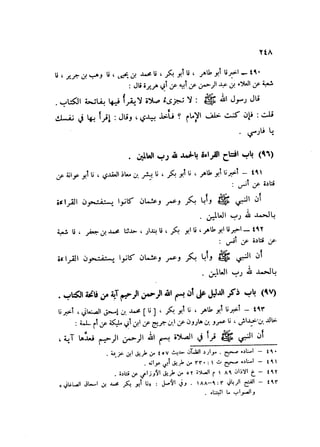 ٢٤٨
٤٩٠ — أخبرنا أبو طاهر ، نا أبو بكر ، نا محمد بن يحيى ، نا وهب بن جرير ، نا
شعبة عن العلاء بن عبد الرحمن عن أبيه عن أبي هريرة قال :
قال رسول الله ﷺ : لا تجزئ صلاة لا يقرأ فيها بفاتحة الكتاب .
قلت : فإن كنت خلف الإمام ؟ فأخذ بيدي ، وقال : إقرأ بها في نفسك
يا فارسي .
(٩٦) باب افتتاح القراءة بالحمد لله رب العالمين .
٤٩١ — أخبرنا أبو طاهر ، نا أبو بكر ، نا بشر بن معاذ العقدي ، نا أبو عوانة عن
قتادة عن أنس :
أن النبي ﷺ وأبا بكر وعمر وعثمان كانوا يستفتحون القراءة
بالحمد لله رب العالمين .
٤٩٢ — أخبرنا أبو طاهر ، نا أبو بكر ، نا بندار ، حدثنا محمد بن جعفر ، نا شعبة
عن قتادة عن أنس :
أن النبي ﷺ وأبا بكر وعمر وعثمان كانوا يستفتحون القراءة
بالحمد لله رب العالمين .
(٩٧) باب ذكر الدليل على أن بسم الله الرحمن الرحيم آية من فاتحة الكتاب .
٤٩٣ — أخبرنا أبو طاهر ، نا أبو بكر ، [ نا ] محمد بن إسحق الصنعاني ، أخبرنا
خالد بن خداش ، نا عمر بن هارون عن ابن جريج عن ابن أبي مليكة عن أم سلمة :
أن النبي ﷺ قرأ في الصلاة بسم الله الرحمن الرحيم فعدها آية ،
٤٩٠ — إسناده صحيح .
٤٩١ — إسناده صحيح .
٤٩٢ —
٤٩٣ —